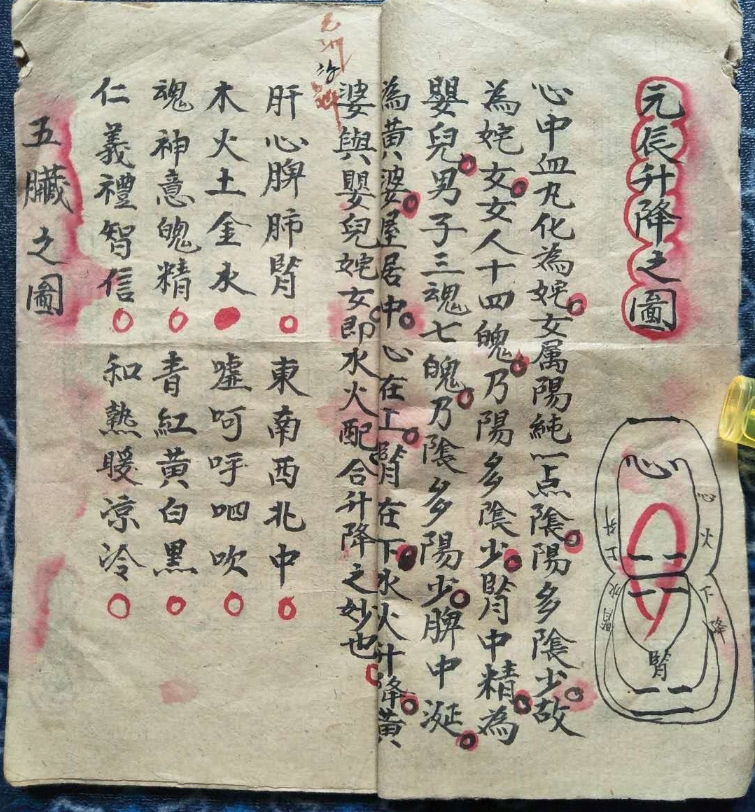 元辰升降之圖
心
心火下降
腎水上升
腎
心中血丸化為姹女属陽純一点陰陽多陰少故
為姹女女人十四魄乃陽多陰少腎中精為
嬰兒男子三魂七魄乃陰多陽少脾中涎
為黃婆屋居中心在工腎在下水火升降黃
婆與嬰兒姹女即水火配合升降之妙也
肝心脾肺腎 東南西北中
木火土金水 嘘呵呼呬吹
魂神意魄精 青紅黃白黑
仁義禮智信 和熱暖凉冷
五臟之圖